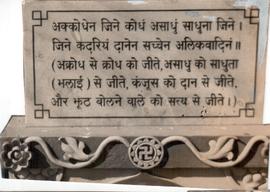 अक्कोधेन जिने कोधं असाधुं साधुना जिने।
जिने कदरियं दानेन सच्चेन अलिकवादिनं॥
(अक्रोध से क्रोध को जीते, असाधु को साधुता
(भलाई) से जीते, कंजूस को दान से जीते,
और झूठ बोलने वाले को सत्य से जीते।)